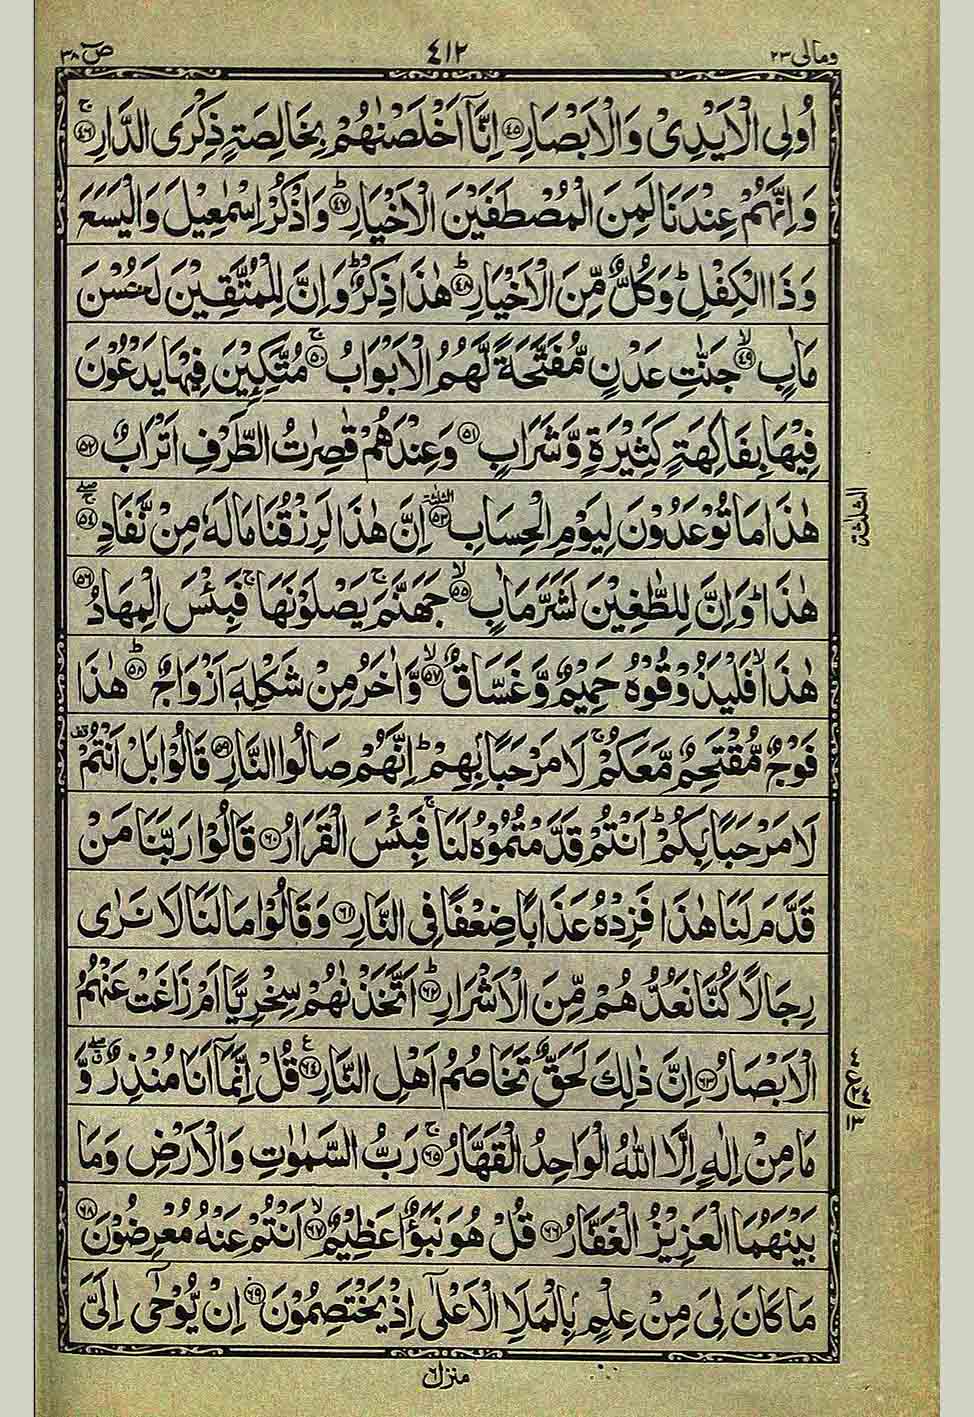 ومالی ۲۳ ۴۱۲ ص ۳۸
اُولِی الْاَیْدِیْ وَالْاَبْصَارِ ﴿۴۵﴾ اِنَّاۤ اَخْلَصْنٰهُمْ بِخَالِصَةٍ ذِكْرَی الدَّارِ ﴿۴۶﴾ۚ
وَ اِنَّهُمْ عِنْدَنَا لَمِنَ الْمُصْطَفَیْنَ الْاَخْیَارِ ﴿۴۷﴾ؕ وَاذْكُرْ اِسْمٰعِیْلَ وَالْیَسَعَ
وَذَا الْكِفْلِ ؕ وَكُلٌّ مِّنَ الْاَخْیَارِ ﴿۴۸﴾ؕ هٰذَا ذِكْرٌ ؕ وَاِنَّ لِلْمُتَّقِیْنَ لَحُسْنَ
مَاٰبٍ ﴿۴۹﴾ۙ جَنّٰتِ عَدْنٍ مُّفَتَّحَةً لَّهُمُ الْاَبْوَابُ ﴿۵۰﴾ۚ مُتَّكِـِٕیْنَ فِیْهَا یَدْعُوْنَ
فِیْهَا بِفَاكِهَةٍ كَثِیْرَةٍ وَّشَرَابٍ ﴿۵۱﴾ وَعِنْدَهُمْ قٰصِرٰتُ الطَّرْفِ اَتْرَابٌ ﴿۵۲﴾
هٰذَا مَا تُوْعَدُوْنَ لِیَوْمِ الْحِسَابِ ﴿۵۳﴾ الثلثة اِنَّ هٰذَا لَرِزْقُنَا مَا لَهٗ مِنْ نَّفَادٍ ﴿۵۴﴾ۚۖ
الثلثة
هٰذَا ؕ وَاِنَّ لِلطّٰغِیْنَ لَشَرَّ مَاٰبٍ ﴿۵۵﴾ۙ جَهَنَّمَ ۚ یَصْلَوْنَهَا ۚ فَبِئْسَ الْمِهَادُ ﴿۵۶﴾
هٰذَا ۙ فَلْیَذُوْقُوْهُ حَمِیْمٌ وَّغَسَّاقٌ ﴿۵۷﴾ۙ وَّاٰخَرُ مِنْ شَكْلِهٖۤ اَزْوَاجٌ ﴿۵۸﴾ؕ هٰذَا
فَوْجٌ مُّقْتَحِمٌ مَّعَكُمْ ۚ لَا مَرْحَبًۢا بِهِمْ ؕ اِنَّهُمْ صَالُوا النَّارِ ﴿۵۹﴾ قَالُوْا بَلْ اَنْتُمْ قف
لَا مَرْحَبًۢا بِكُمْ ؕ اَنْتُمْ قَدَّمْتُمُوْهُ لَنَا ۚ فَبِئْسَ الْقَرَارُ ﴿۶۰﴾ قَالُوْا رَبَّنَا مَنْ
قَدَّمَ لَنَا هٰذَا فَزِدْهُ عَذَابًا ضِعْفًا فِی النَّارِ ﴿۶۱﴾ وَقَالُوْا مَا لَنَا لَا نَرٰی
رِجَالًا كُنَّا نَعُدُّهُمْ مِّنَ الْاَشْرَارِ ﴿۶۲﴾ؕ اَتَّخَذْنٰهُمْ سِخْرِیًّا اَمْ زَاغَتْ عَنْهُمُ
الْاَبْصَارُ ﴿۶۳﴾ اِنَّ ذٰلِكَ لَحَقٌّ تَخَاصُمُ اَهْلِ النَّارِ ﴿۶۴﴾ ع قُلْ اِنَّمَاۤ اَنَا مُنْذِرٌ ۖ وَّ
مَا مِنْ اِلٰهٍ اِلَّا اللّٰهُ الْوَاحِدُ الْقَهَّارُ ﴿۶۵﴾ۚ رَبُّ السَّمٰوٰتِ وَالْاَرْضِ وَمَا
بَیْنَهُمَا الْعَزِیْزُ الْغَفَّارُ ﴿۶۶﴾ قُلْ هُوَ نَبَؤٌا عَظِیْمٌ ﴿۶۷﴾ۙ اَنْتُمْ عَنْهُ مُعْرِضُوْنَ ﴿۶۸﴾
مَا كَانَ لِیَ مِنْ عِلْمٍۭ بِالْمَلَاِ الْاَعْلٰۤی اِذْ یَخْتَصِمُوْنَ ﴿۶۹﴾ اِنْ یُّوْحٰۤی اِلَیَّ
منزل ۶